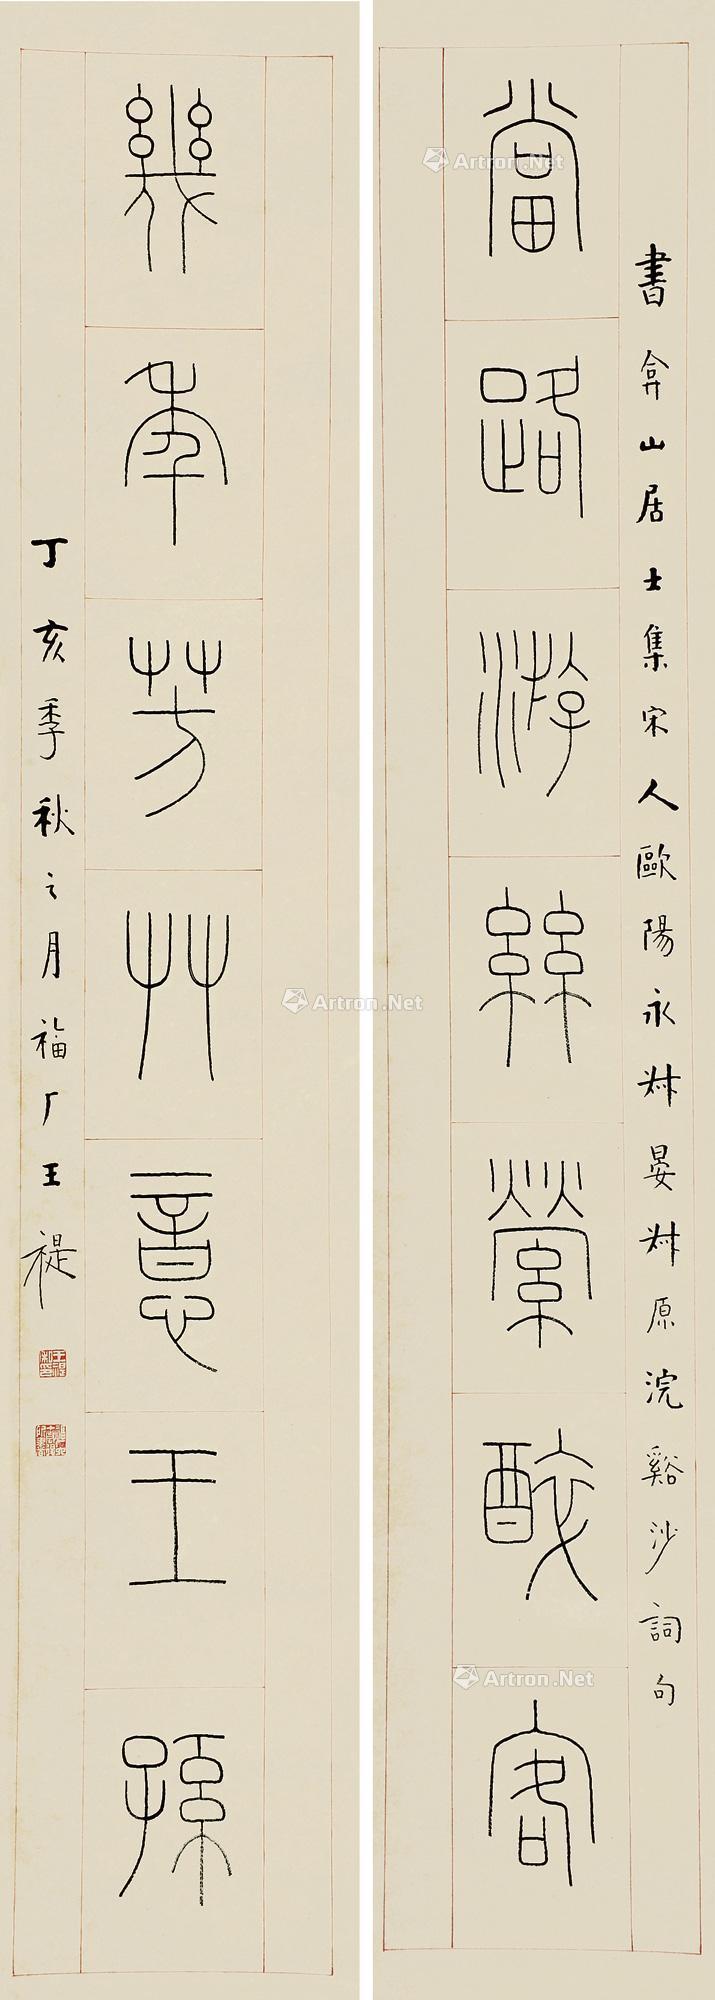 書弇山居士集宋人歐陽永叔晏叔原浣谿沙詞句
當路游絲縈醉客
幾年芳艸意王孫
丁亥季秋之月福厂王禔
Artron.Net
Artron.Net
Artron.Net